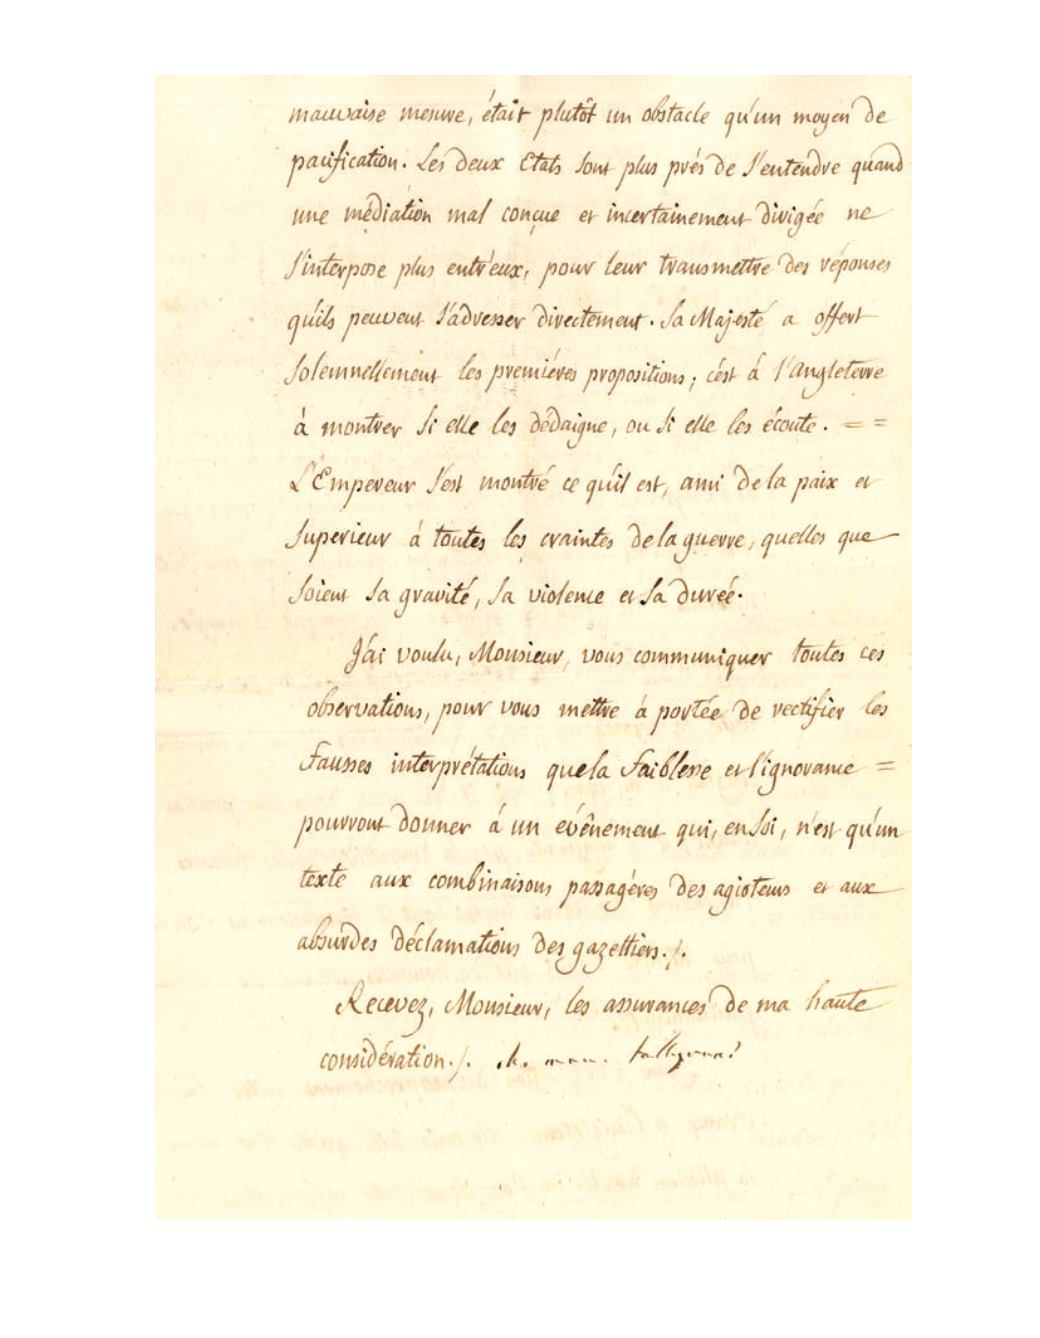 mauvaise mesure, était plutôt un obstacle qu'un moyen de
pacification. Les deux Etats sont plus prés de s'entendre quand
une médiation mal conçue et incertainement dirigée ne
s'interpose plus entr'eux, pour leur transmettre des réponses
qu'ils peuvent s'adresser directement. Sa Majesté a offert
solemnellement les premiéres propositions; c'est à l'Angleterre
à montrer si elle les dédaigne, ou si elle les écoute. = =
L'Empereur s'est montré ce qu'il est, ami de la paix et
superieur á toutes les craintes de la guerre, quelles que
soient sa gravité, sa violence et sa durée.
J'ai voulu, Monsieur, vous communiquer toutes ces
observations, pour vous mettre á portée de rectifier les
fausses interprétations que la faiblesse et l'ignorance =
pourront donner á un événement qui, en soi, n'est qu'un
texte aux combinaisons passagéres des agioteurs et aux
absurdes déclamations des gazettiers./.
Recevez, Monsieur, les assurances de ma haute
considération./. ch. mau. talleyrand